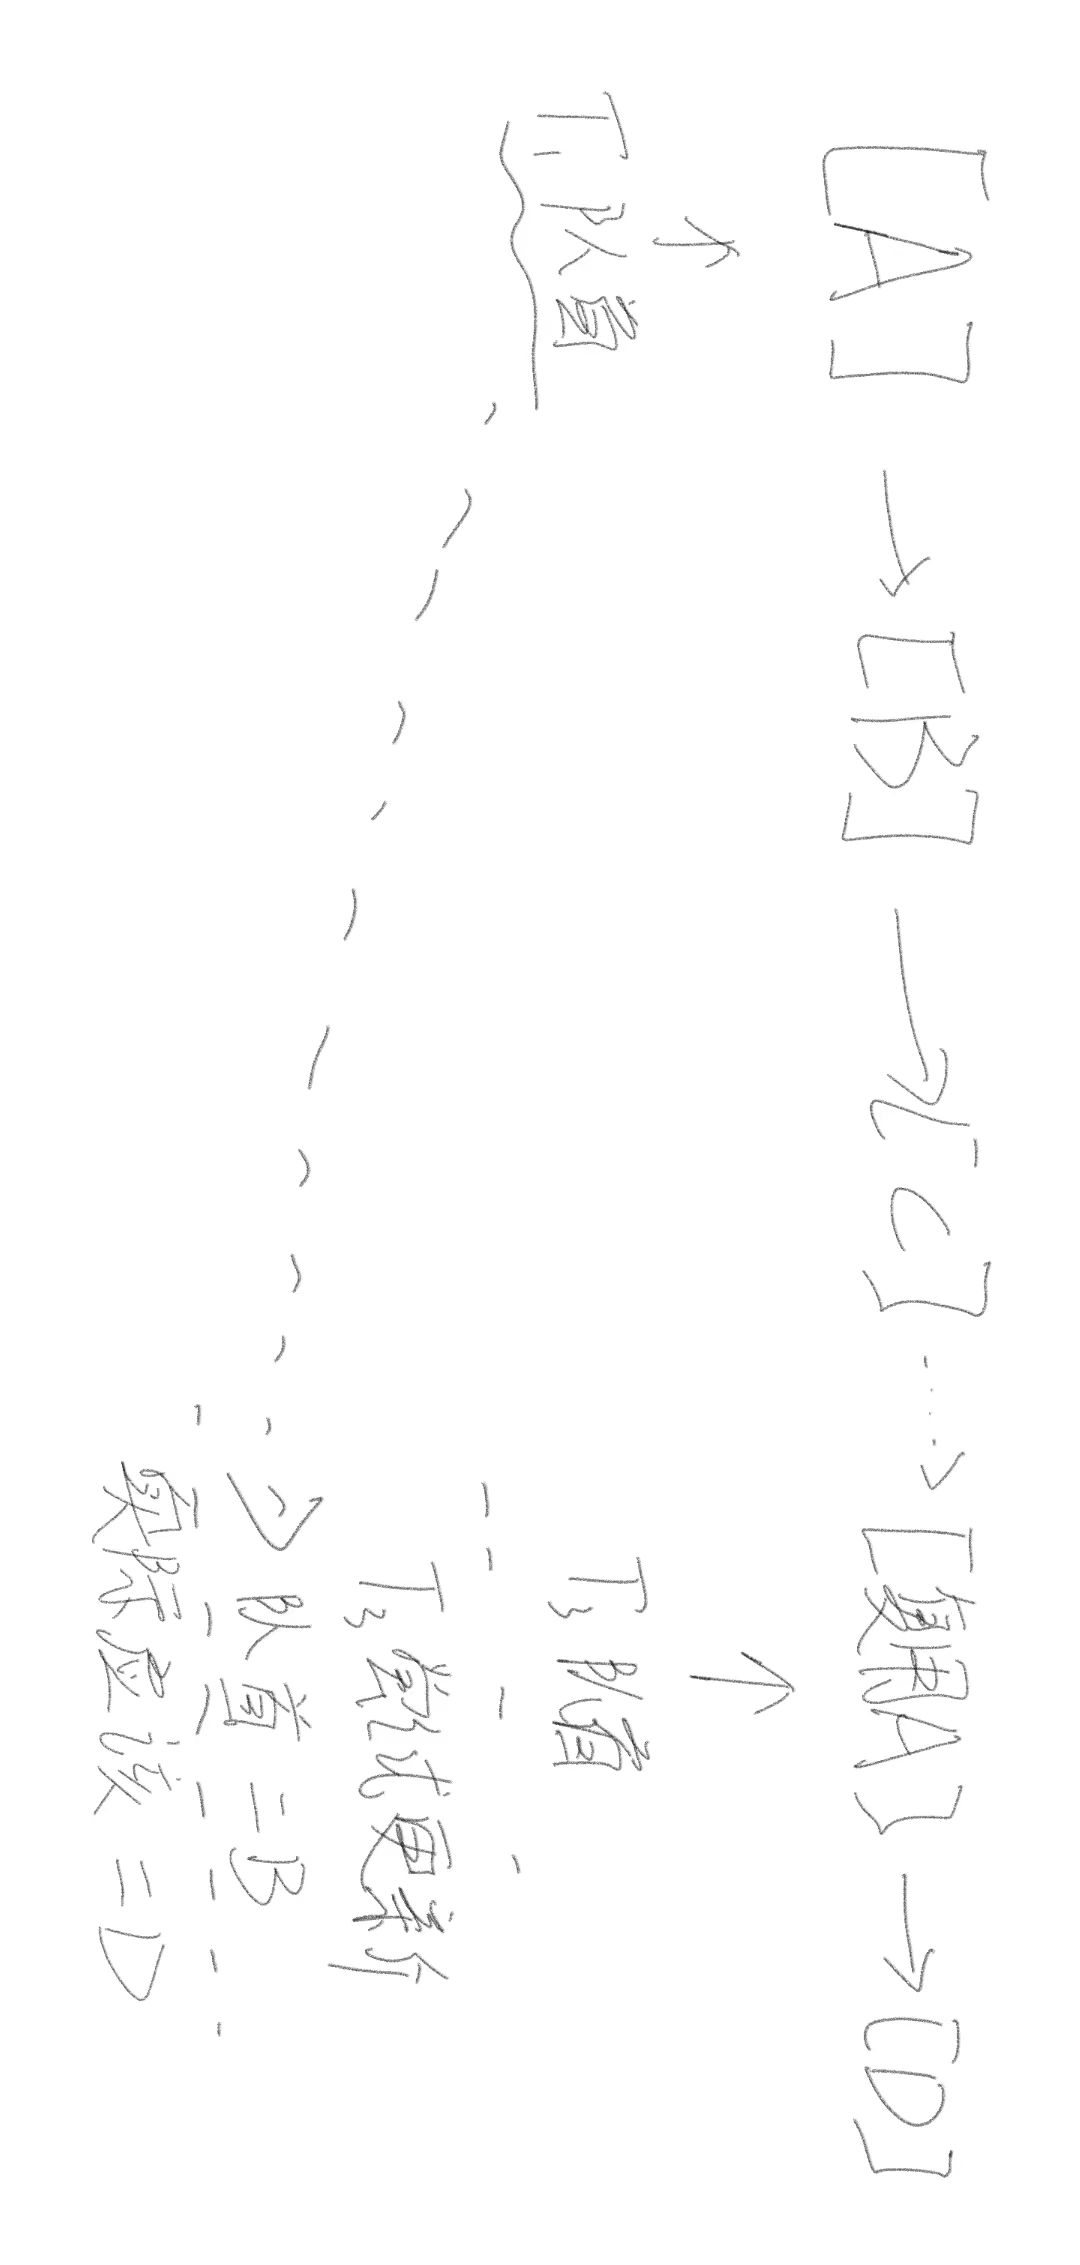 [A] → [B] → [C] ....→ [复用A] → [D]
↑ ↑
T1 队首 T3 队首
T3 尝试更新
队首 = B
实际应该 = D